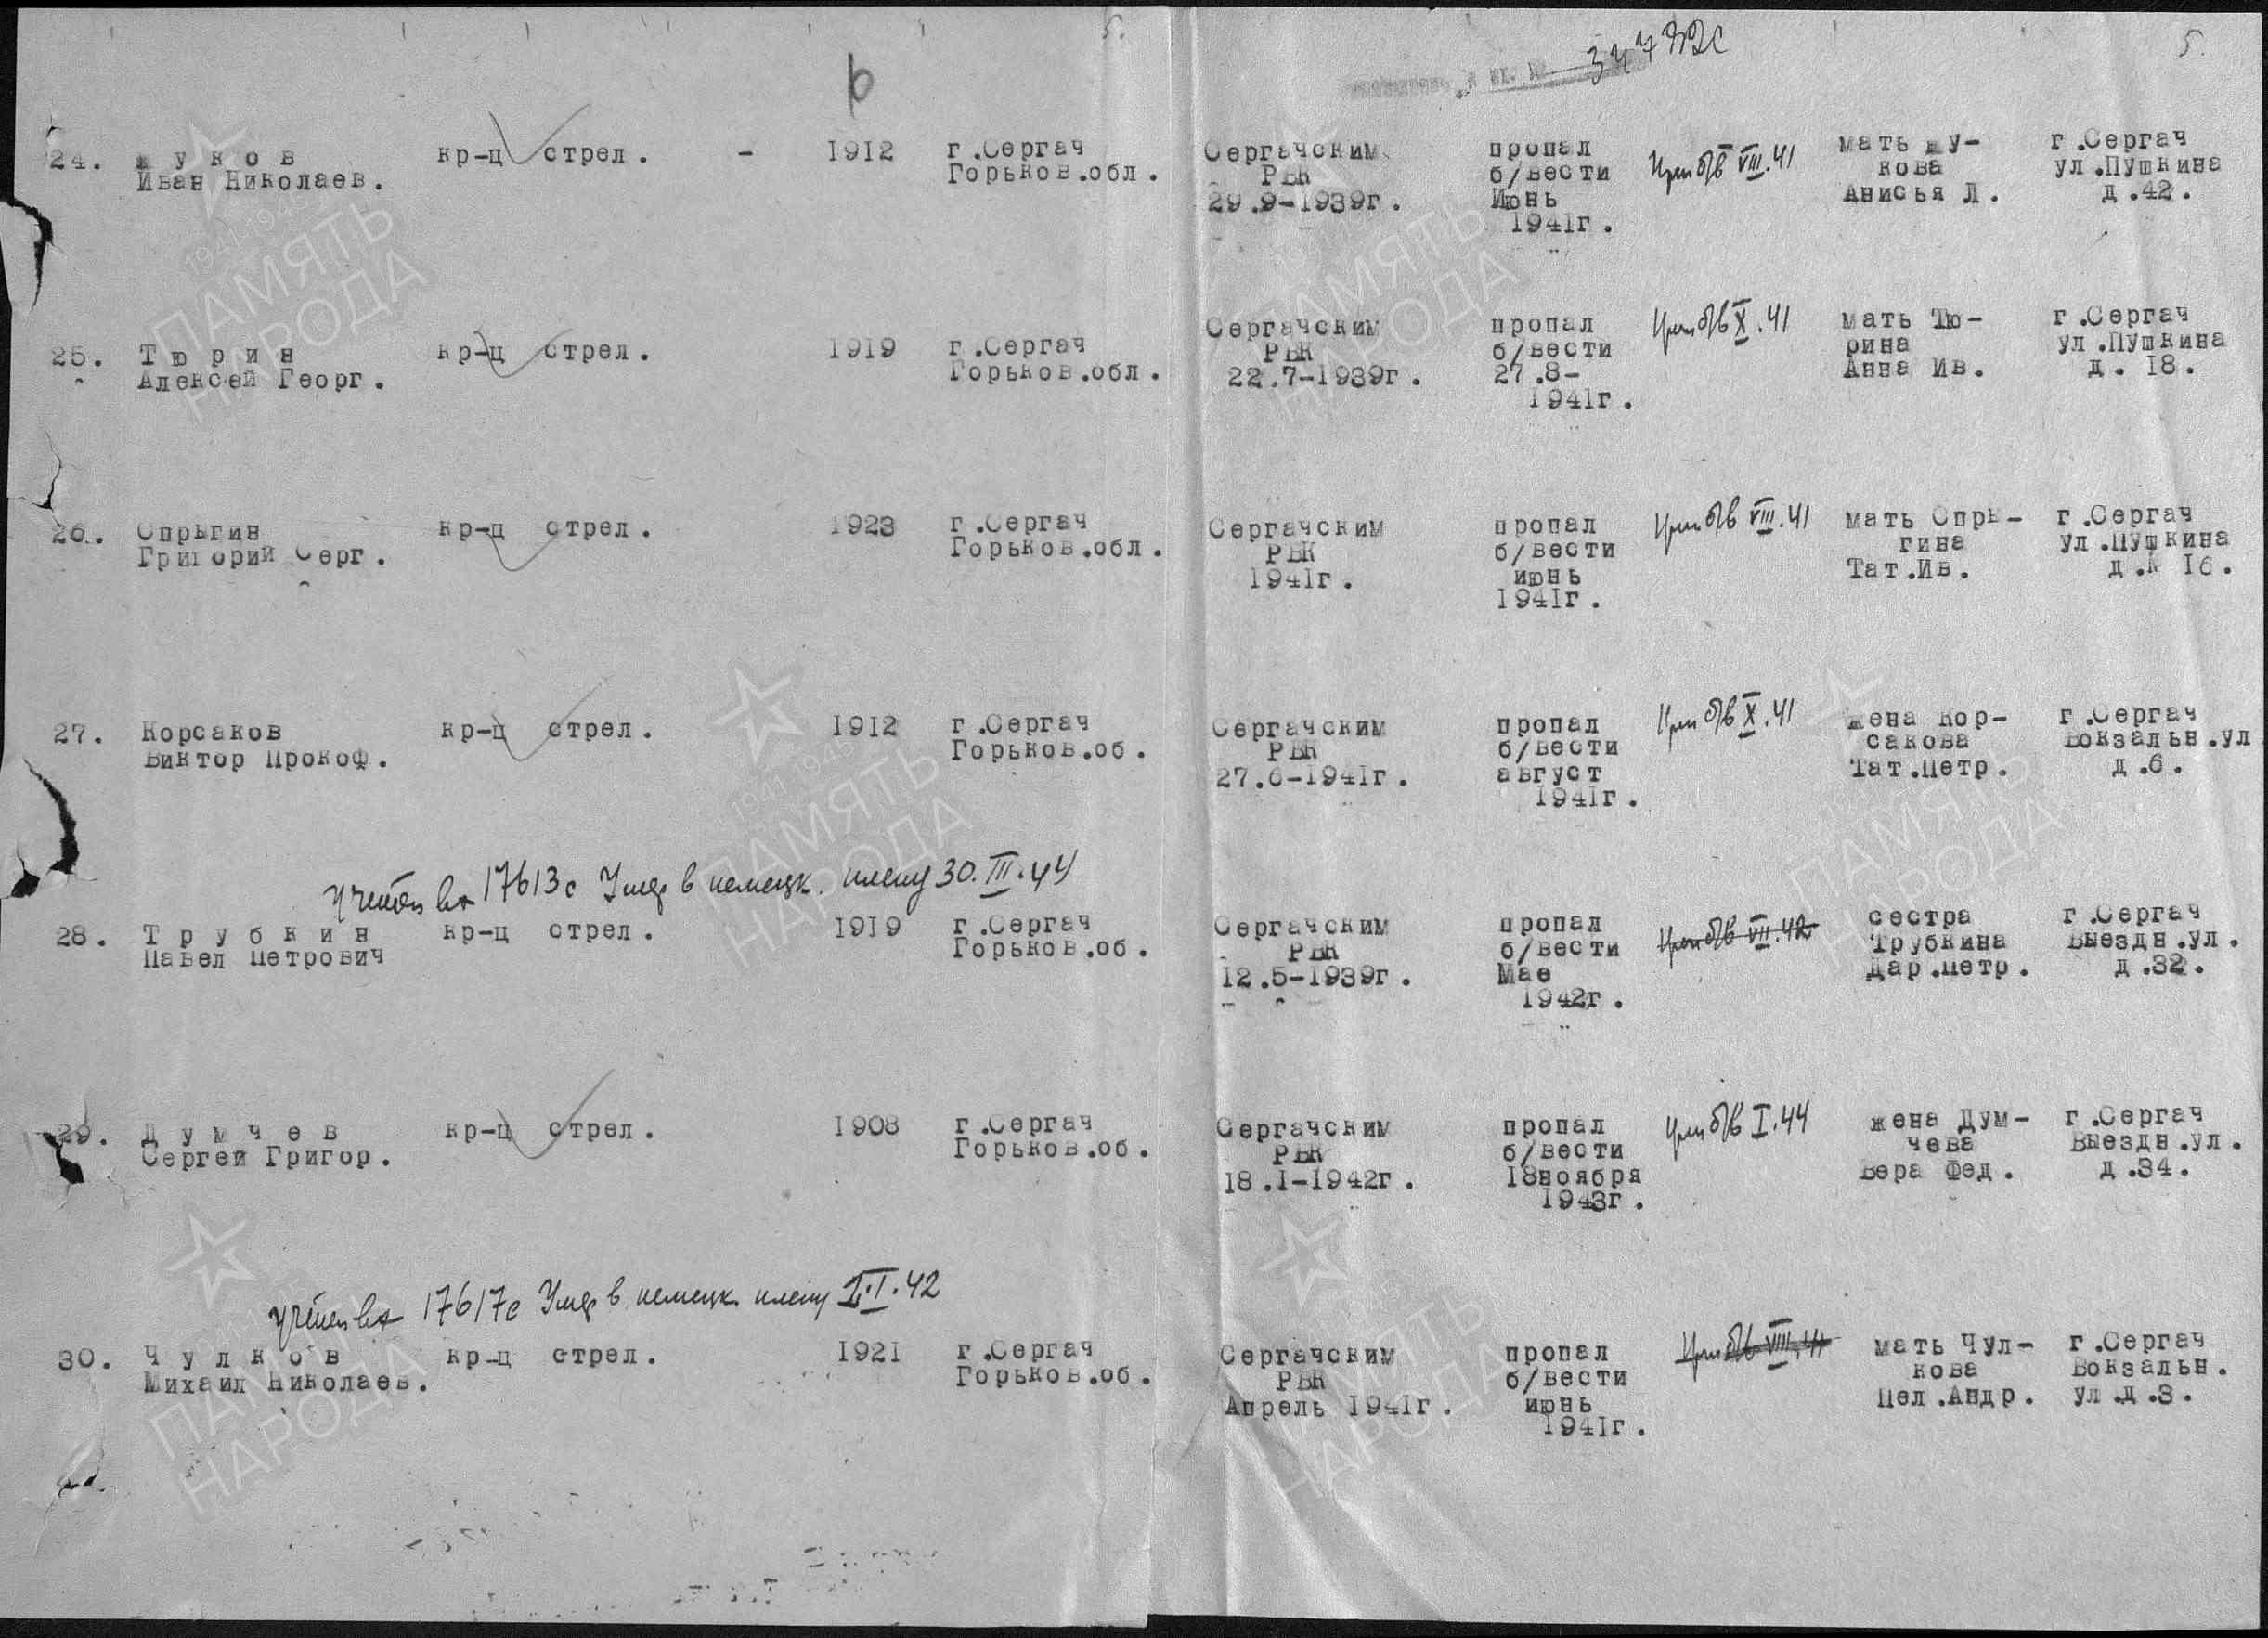 5.
6
34782с
5.
24. Ж у к о в кр-ц стрел. - 1912 г.Сергач Сергачским пропал Проп б/в VIII.41 мать Жу- г.Сергач
Иван Николаев. Горьков.обл. РВК б/вести кова ул.Пушкина
29.9-1939г. Июнь Анисья Л. д.42.
1941г.
25. Т ю р и н кр-ц стрел. 1919 г.Сергач Сергачским пропал Проп б/в X.41 мать Тю- г.Сергач
Алексей Георг. Горьков.обл. РВК б/вести рина ул.Пушкина
22.7-1939г. 27.8- Анна Ив. д. 18.
1941г.
26. Спрыгин кр-ц стрел. 1923 г.Сергач Сергачским пропал Проп б/в VIII.41 мать Спры- г.Сергач
Григорий Серг. Горьков.обл. РВК б/вести гина ул.Пушкина
1941г. июнь Тат.Ив. д.№ 16.
1941г.
27. Корсаков кр-ц стрел. 1912 г.Сергач Сергачским пропал Проп б/в X.41 жена Кор- г.Сергач
Виктор Прокоф. Горьков.об. РВК б/вести сакова Вокзальн.ул
27.6-1941г. август Тат.Петр. д.6.
1941г.
Учтён вх 17613с Умер в немецк. плену 30.III.44
28. Т р у б к и н кр-ц стрел. 1919 г.Сергач Сергачским пропал Проп б/в VII.42 сестра г.Сергач
Павел Петрович Горьков.об. РВК б/вести Трубкина Выездн.ул.
12.5-1939г. Мае Дар.Петр. д.32.
1942г.
29. Д у м ч е в кр-ц стрел. 1908 г.Сергач Сергачским пропал Проп б/в I.44 жена Дум- г.Сергач
Сергей Григор. Горьков.об. РВК б/вести чева Выездн.ул.
18.1-1942г. 18ноября Вера Фед. д.34.
1943г.
Учтён вх 17617с Умер в немецк. плену I.42
30. Ч у л к о в кр-ц стрел. 1921 г.Сергач Сергачским пропал Проп б/в VIII.41 мать Чул- г.Сергач
Михаил Николаев. Горьков.об. РВК б/вести кова Вокзальн.
Апрель 1941г. июнь Пел.Андр. ул.д.3.
1941г.
1941 1945
ПАМЯТЬ
НАРОДА